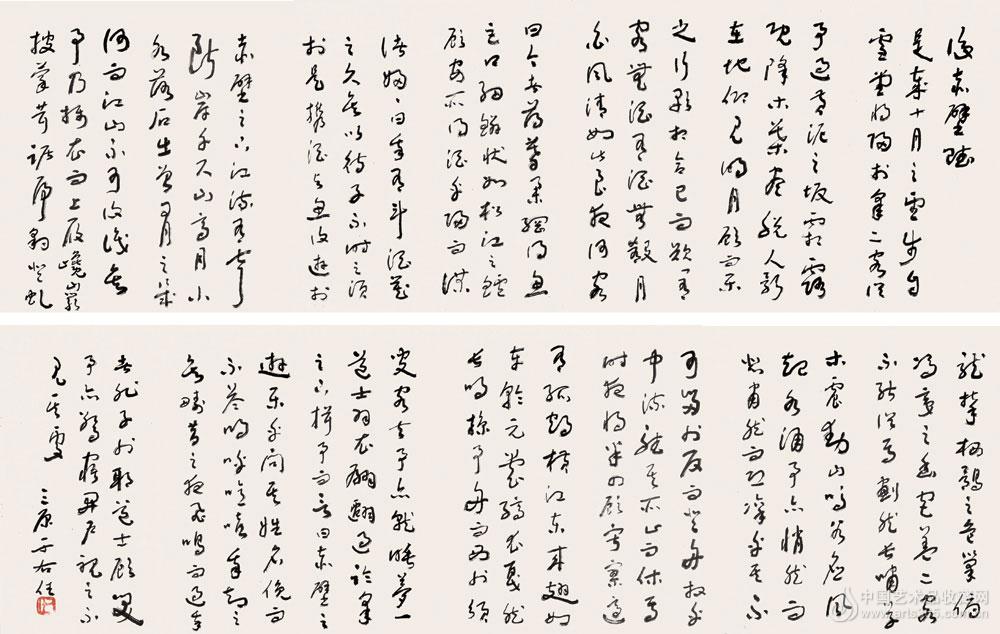 後赤壁賦
是歲十月之望步自
雪堂將歸於皋二客從
予過黃泥之坂霜露
既降木葉盡脫人影
在地仰見明月顧而樂
之行歌相答已而歎有
客無酒有酒無殽月
白風清如此良夜何客
曰今者薄暮舉網得魚
巨口細鱗狀如松江之鱸
顧安所得酒乎歸而謀
諸婦婦曰我有斗酒藏
之久矣以待子不時之須
於是攜酒與魚復遊於
赤壁之下江流有聲
斷岸千尺山高月小
水落石出曾日月之幾
何而江山不可復識矣
予乃攝衣而上履巉巖
披蒙茸踞虎豹登虬
龍攀栖鶻之危巢俯
馮夷之幽宮蓋二客
不能從焉劃然長嘯草
木震動山鳴谷應風
起水涌予亦悄然而
悲肅然而恐凜乎其不
可留也反而登舟放乎
中流聽其所止而休焉
時夜將半四顧寂寥適
有孤鶴橫江東來翅如
車輪玄裳縞衣戛然
長鳴掠予舟而西也須
臾客去予亦就睡夢一
道士羽衣翩躚過臨皋
之下揖予而言曰赤壁之
遊樂乎問其姓名俛而
不答嗚呼噫嘻我知之
矣疇昔之夜飛鳴而過我
者非子也耶道士顧笑
予亦驚寤開戶視之不
見其處
三原于右任
中国艺术品收藏网